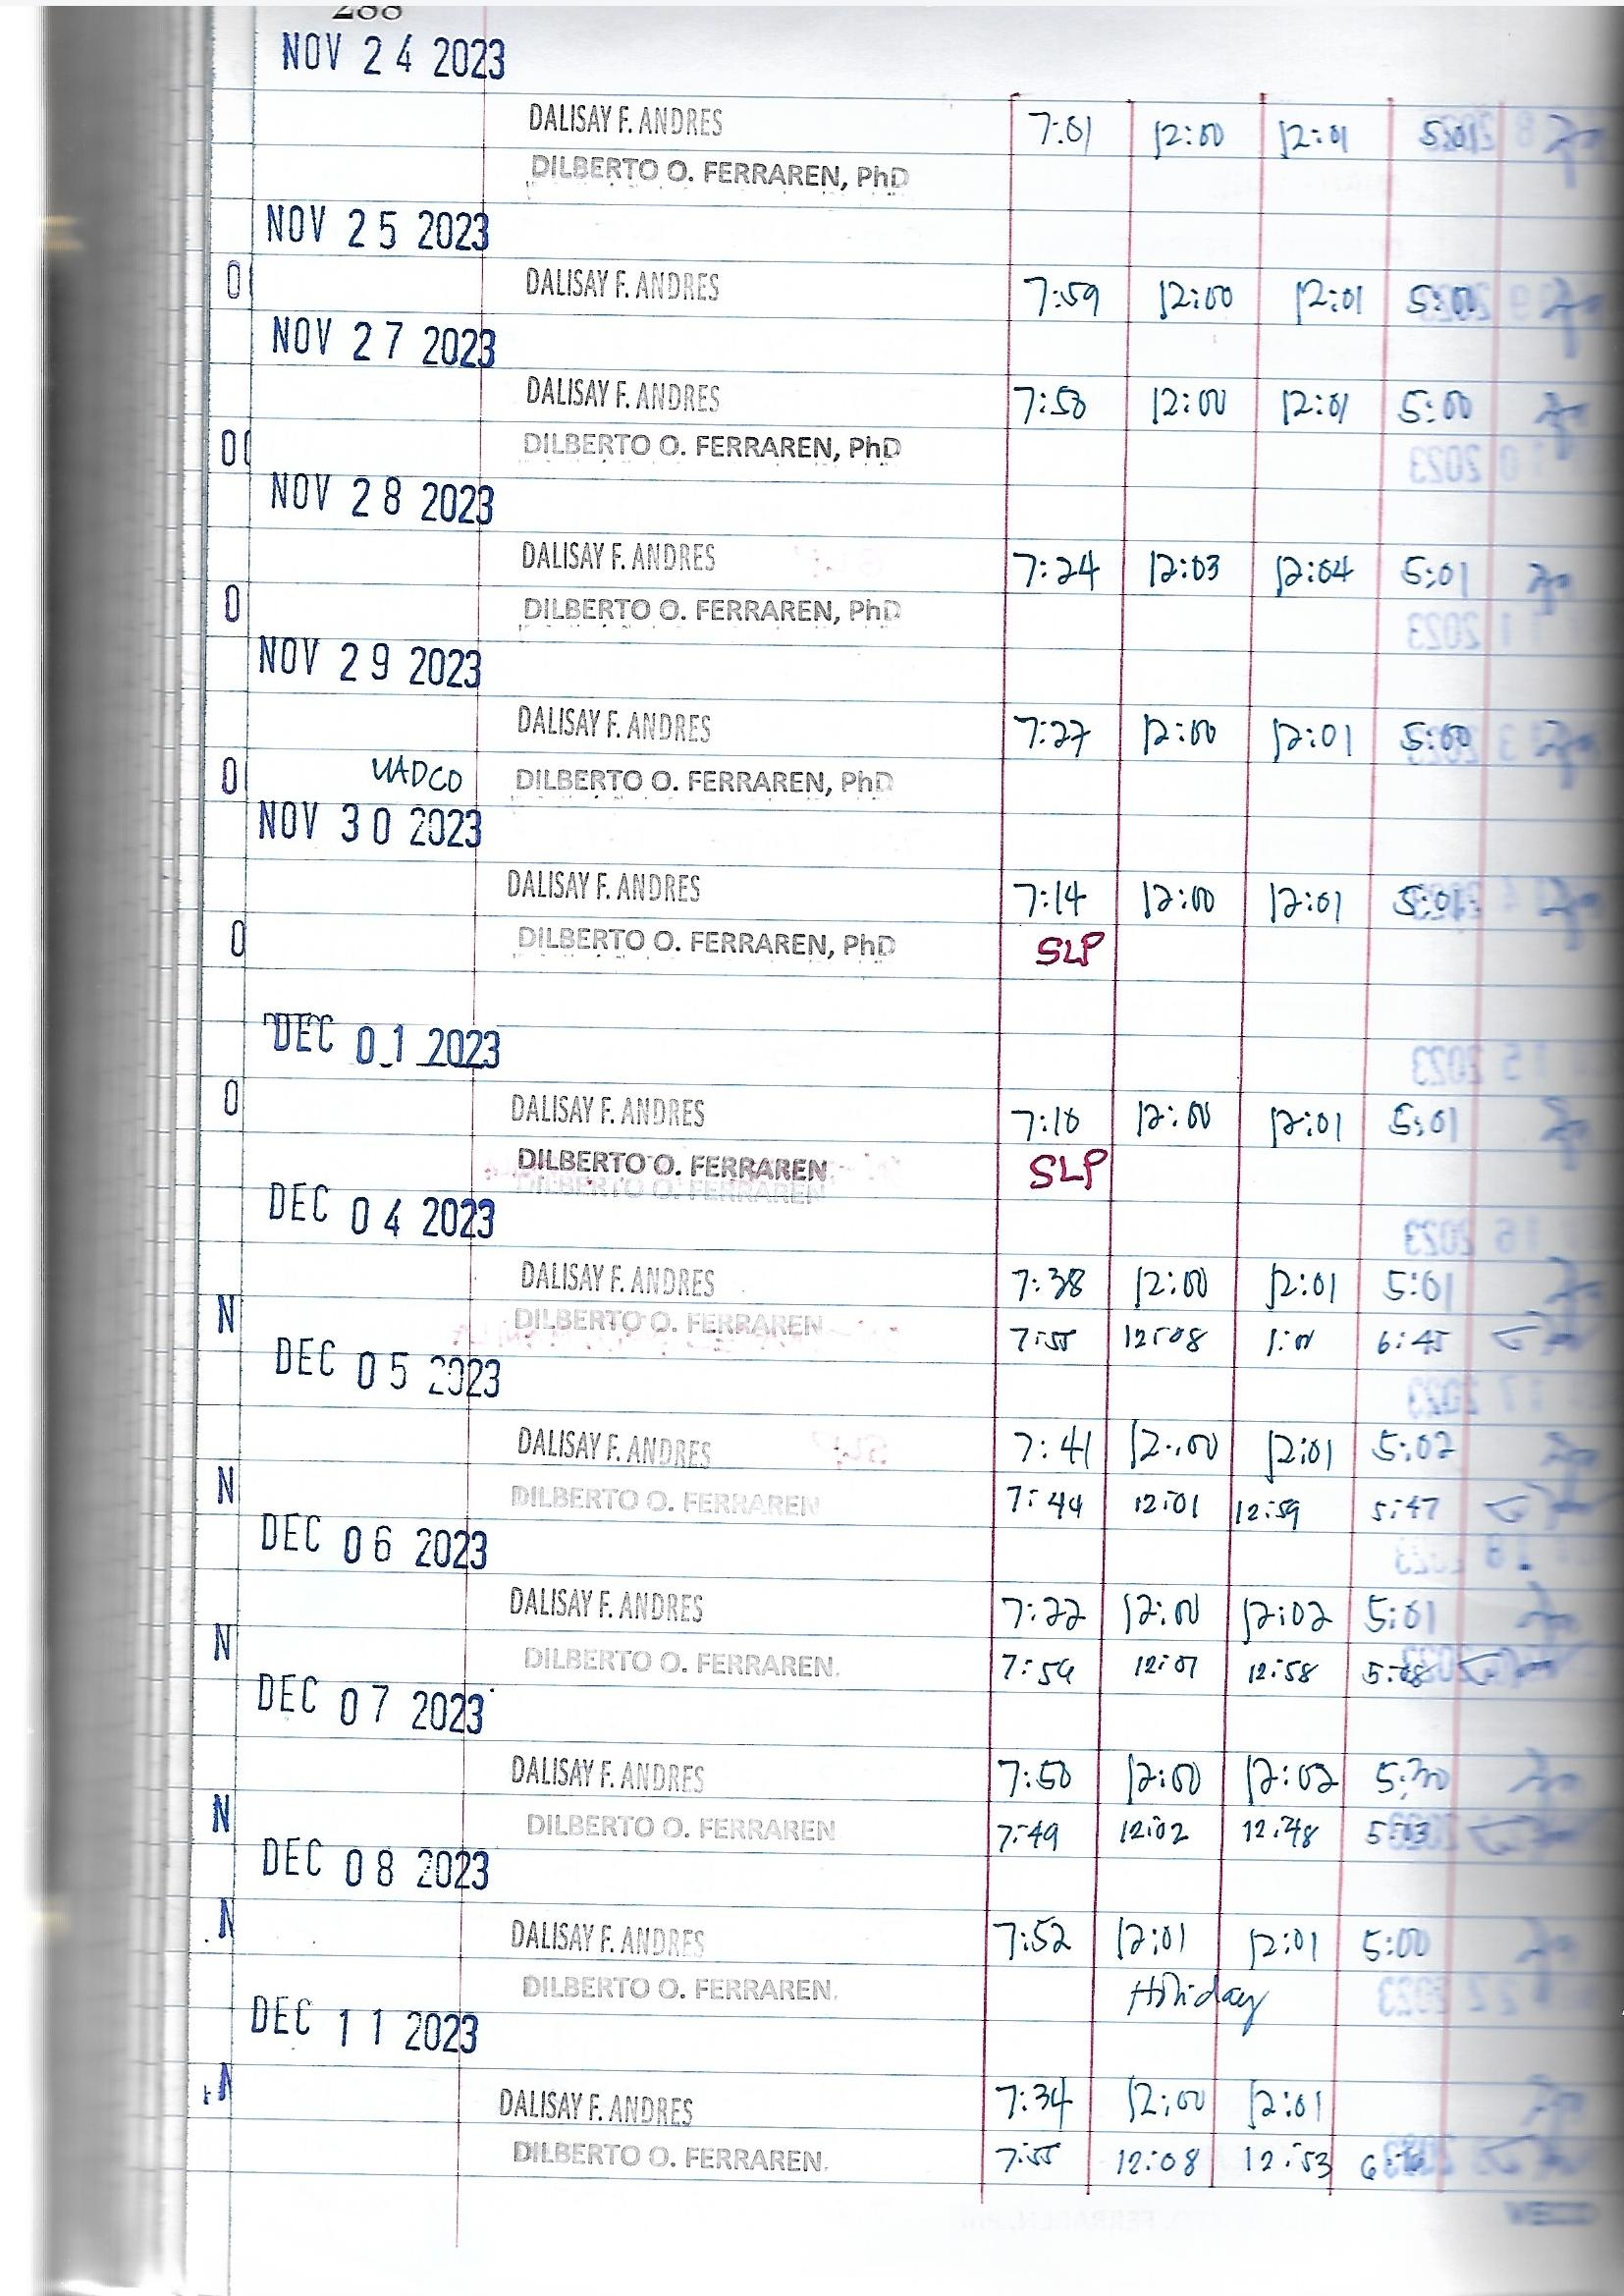 288
NOV 24 2023
DALISAY F. ANDRES 7:01 12:00 12:01 5:01
DILBERTO O. FERRAREN, PhD
NOV 25 2023
DALISAY F. ANDRES 7:59 12:00 12:01 5:00
NOV 27 2023
DALISAY F. ANDRES 7:50 12:00 12:01 5:00
DILBERTO O. FERRAREN, PhD
NOV 28 2023
DALISAY F. ANDRES 7:24 12:03 12:04 5:01
DILBERTO O. FERRAREN, PhD
NOV 29 2023
DALISAY F. ANDRES 7:27 12:00 12:01 5:00
UADCO DILBERTO O. FERRAREN, PhD
NOV 30 2023
DALISAY F. ANDRES 7:14 12:00 12:01 5:01
DILBERTO O. FERRAREN, PhD SLP
DEC 01 2023
DALISAY F. ANDRES 7:10 12:00 12:01 5:01
DILBERTO O. FERRAREN SLP
DEC 04 2023
DALISAY F. ANDRES 7:38 12:00 12:01 5:01
DILBERTO O. FERRAREN 7:55 12:08 1:01 6:45
DEC 05 2023
DALISAY F. ANDRES 7:41 12:00 12:01 5:02
DILBERTO O. FERRAREN 7:44 12:01 12:59 5:47
DEC 06 2023
DALISAY F. ANDRES 7:22 12:00 12:02 5:01
DILBERTO O. FERRAREN. 7:54 12:07 12:58
DEC 07 2023
DALISAY F. ANDRES 7:50 12:00 12:02 5:30
DILBERTO O. FERRAREN 7:49 12:02 12:48 5:03
DEC 08 2023
DALISAY F. ANDRES 7:52 12:01 12:01 5:00
DILBERTO O. FERRAREN. Holiday
DEC 11 2023
DALISAY F. ANDRES 7:34 12:00 12:01
DILBERTO O. FERRAREN. 7:55 12:08 12:53